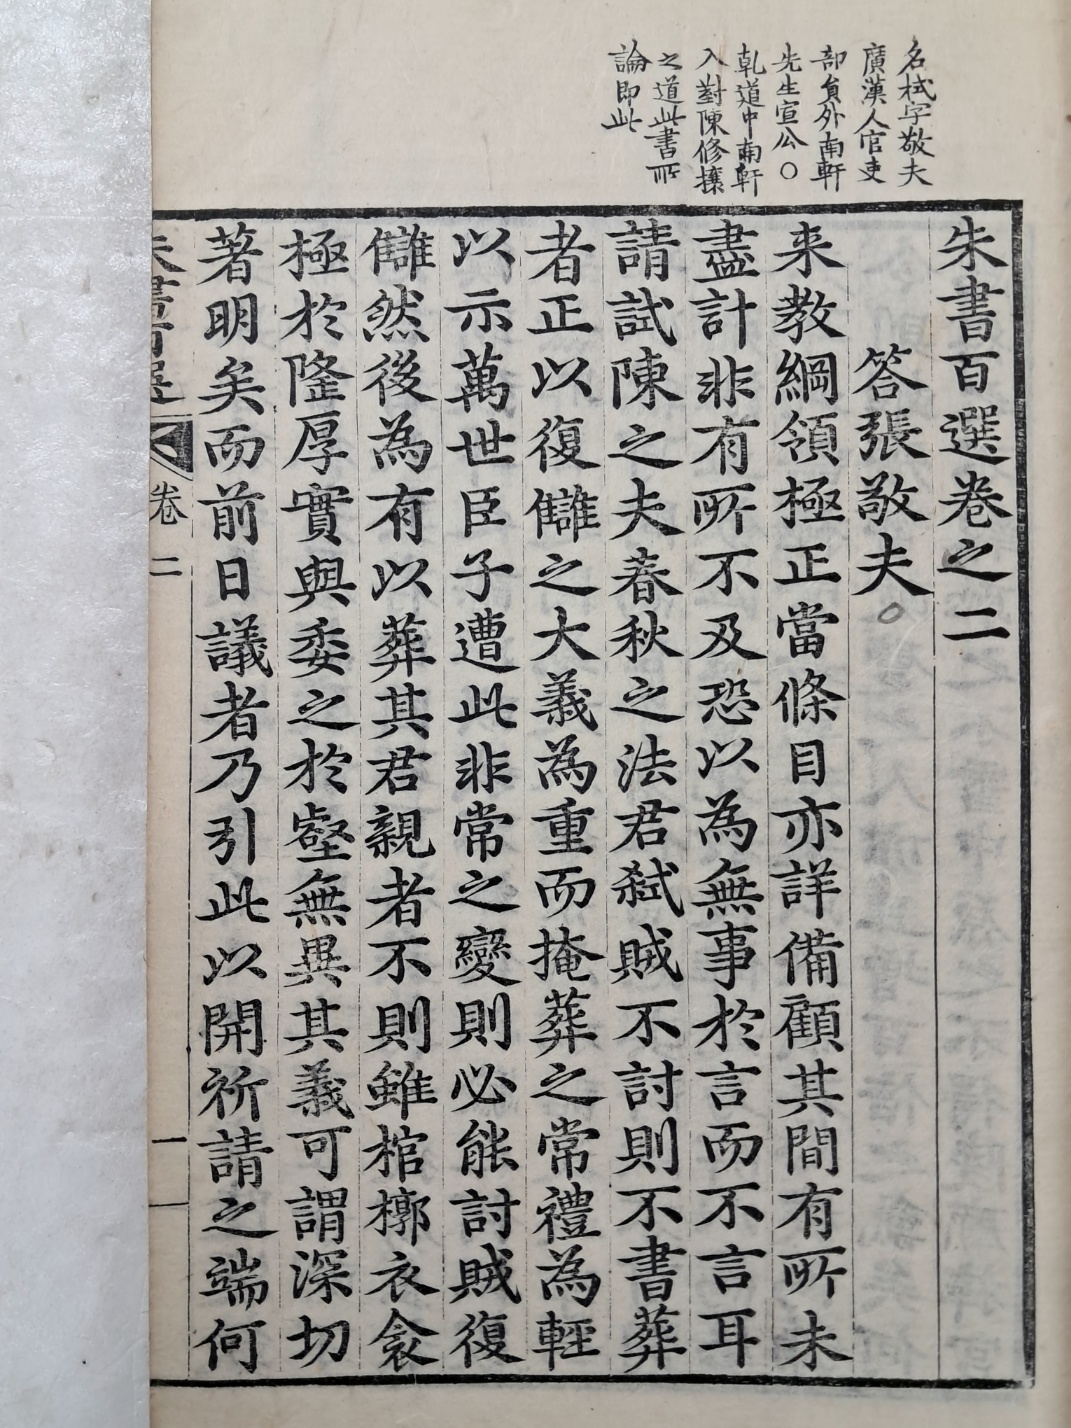 名栻字敬夫
廣漢人官吏
部負外南軒
先生宣公○
乹道中南軒
入對陳修攘
之道此書所
論即此
朱書百選卷之二
答張敬夫○
来教綱領極正當條目亦詳備顧其間有所未
盡計非有所不及恐以為無事於言而不言耳
請試陳之夫春秋之法君弑賊不討則不書葬
者正以復讎之大義為重而掩葬之常禮為輕
以示萬世臣子遭此非常之變則必能討賊復
讎然後為有以葬其君親者不則雖棺槨衣衾
極於隆厚實與委之於壑無異其義可謂深切
著明矣而前日議者乃引此以開祈請之端何
朱書百選 卷二 一